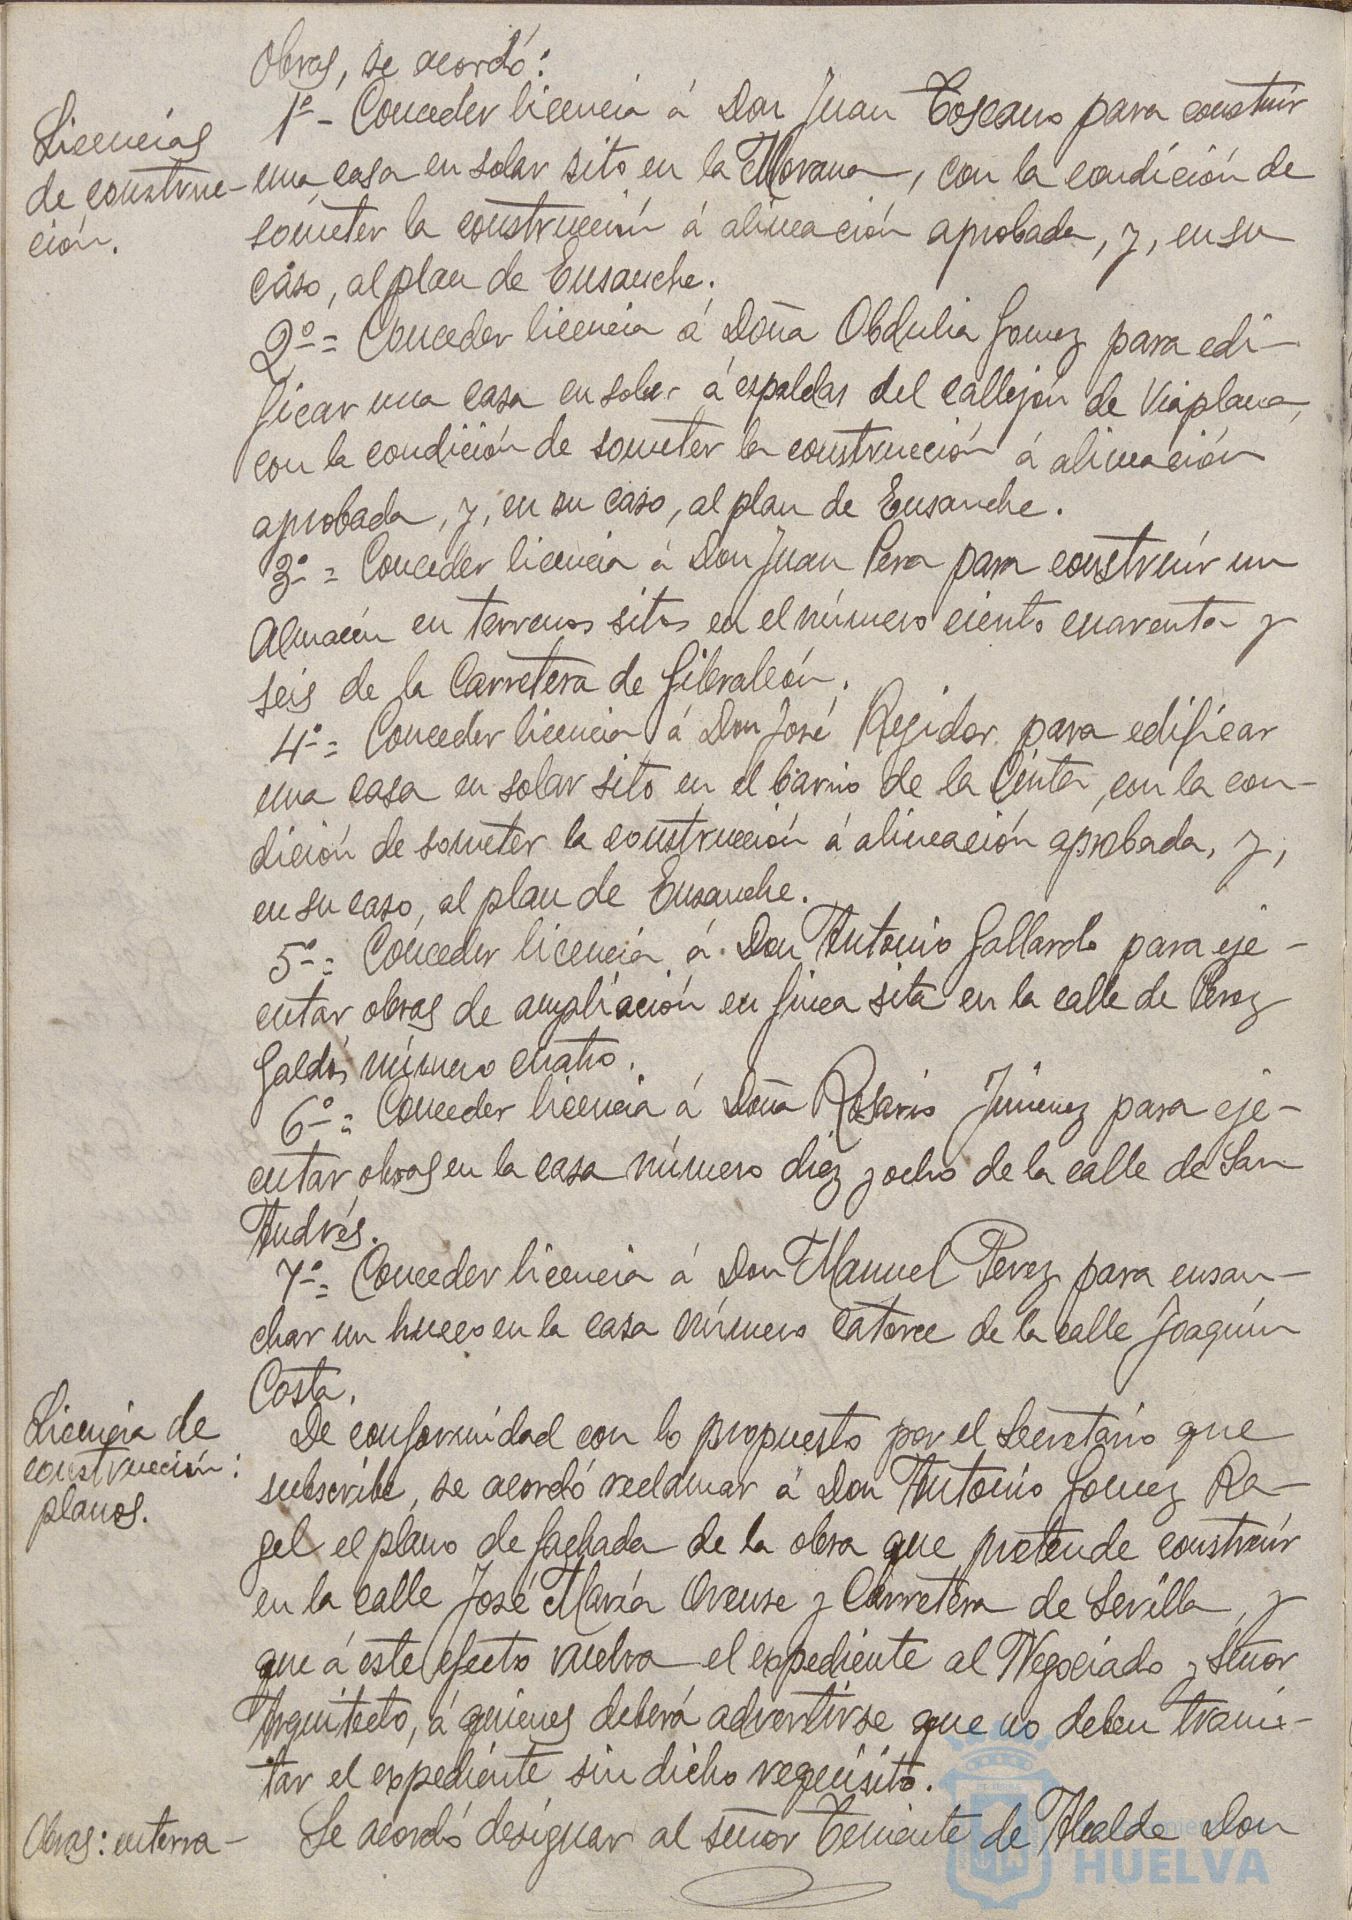 Obras, se acordó:
Licencias
de construc-
ción.
1º - Conceder licencia á Don Juan Toscano para construir
una casa en solar sito en la Morana, con la condición de
someter la construcción á alineación aprobada, y, en su
caso, al plan de Ensanche.
2º = Conceder licencia á Doña Obdulia Gomez para edi-
ficar una casa en solar á espaldas del callejón de Viaplana,
con la condición de someter la construcción á alineación
aprobada, y, en su caso, al plan de Ensanche.
3º = Conceder licencia á Don Juan Pera para construír un
Almacén en terrenos sitos en el número ciento cuarenta y
seis de la Carretera de Gibraleón.
4º = Conceder licencia á Don José Regidor para edificar
una casa en solar sito en el barrio de la Cinta, con la con-
dición de someter la construcción á alineación aprobada, y,
en su caso, al plan de Ensanche.
5º = Conceder licencia á Don Antonio Gallardo para eje-
cutar obras de ampliación en finca sita en la calle de Perez
Galdós número cuatro.
6º = Conceder licencia á Doña Rosario Jimenez para eje-
cutar obras en la casa número diez y ocho de la calle de San
Andrés.
7º = Conceder licencia á Don Manuel Perez para ensan-
char un hueco en la casa número catorce de la calle Joaquín
Costa.
Licencia de
construcción:
planos.
De conformidad con lo propuesto por el Secretario que
subscribe, se acordó reclamar á Don Antonio Gomez Ra-
gel el plano de fachada de la obra que pretende construír
en la calle José María Orense y Carretera de Sevilla, y
que á este efecto vuelva el expediente al Negociado y Señor
Arquitecto, á quienes deberá advertirse que no deben trami-
tar el expediente sin dicho requisito.
Obras: enterra-
Se acordó designar al señor Teniente de Alcalde Don
HUELVA